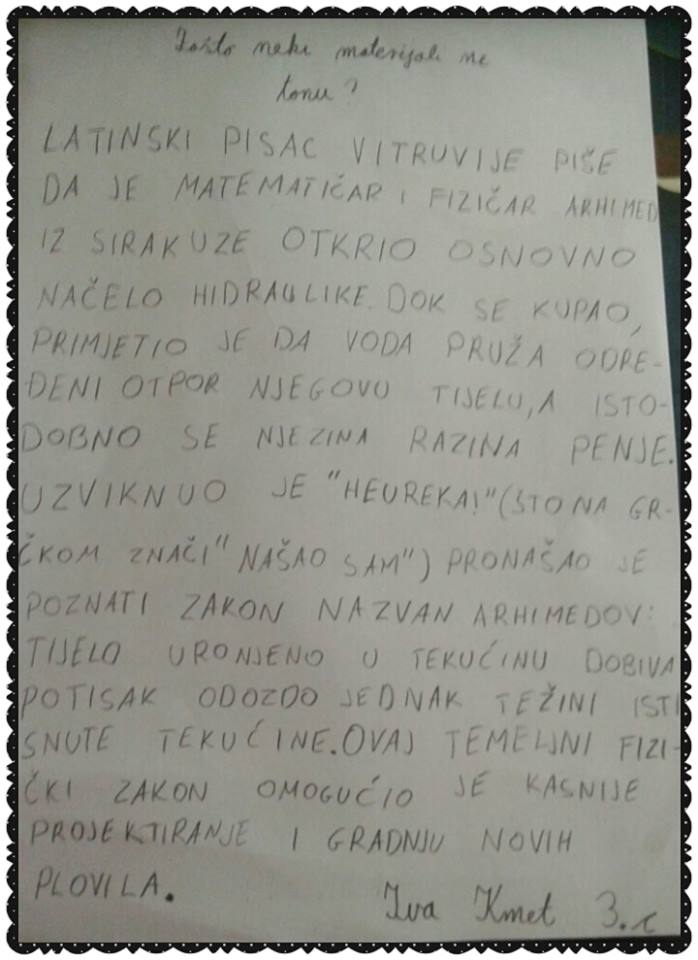 Zašto neki materijali ne
tonu?
LATINSKI PISAC VITRUVIJE PIŠE
DA JE MATEMATIČAR I FIZIČAR ARHIMED
IZ SIRAKUZE OTKRIO OSNOVNO
NAČELO HIDRAULIKE. DOK SE KUPAO,
PRIMJETIO JE DA VODA PRUŽA ODRE-
ĐENI OTPOR NJEGOVU TIJELU, A ISTO-
DOBNO SE NJEZINA RAZINA PENJE.
UZVIKNUO JE "HEUREKA!" (ŠTO NA GR-
ČKOM ZNAČI "NAŠAO SAM") PRONAŠAO JE
POZNATI ZAKON NAZVAN ARHIMEDOV:
TIJELO URONJENO U TEKUĆINU DOBIVA
POTISAK ODOZDO JEDNAK TEŽINI ISTI
SNUTE TEKUĆINE. OVAJ TEMELJNI FIZI-
ČKI ZAKON OMOGUĆIO JE KASNIJE
PROJEKTIRANJE I GRADNJU NOVIH
PLOVILA.
Iva Kmet 3.